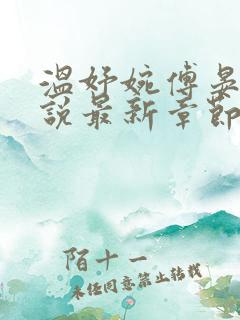 温妤婉傅晏
说最新章节
陌十一
未经同意禁止转载